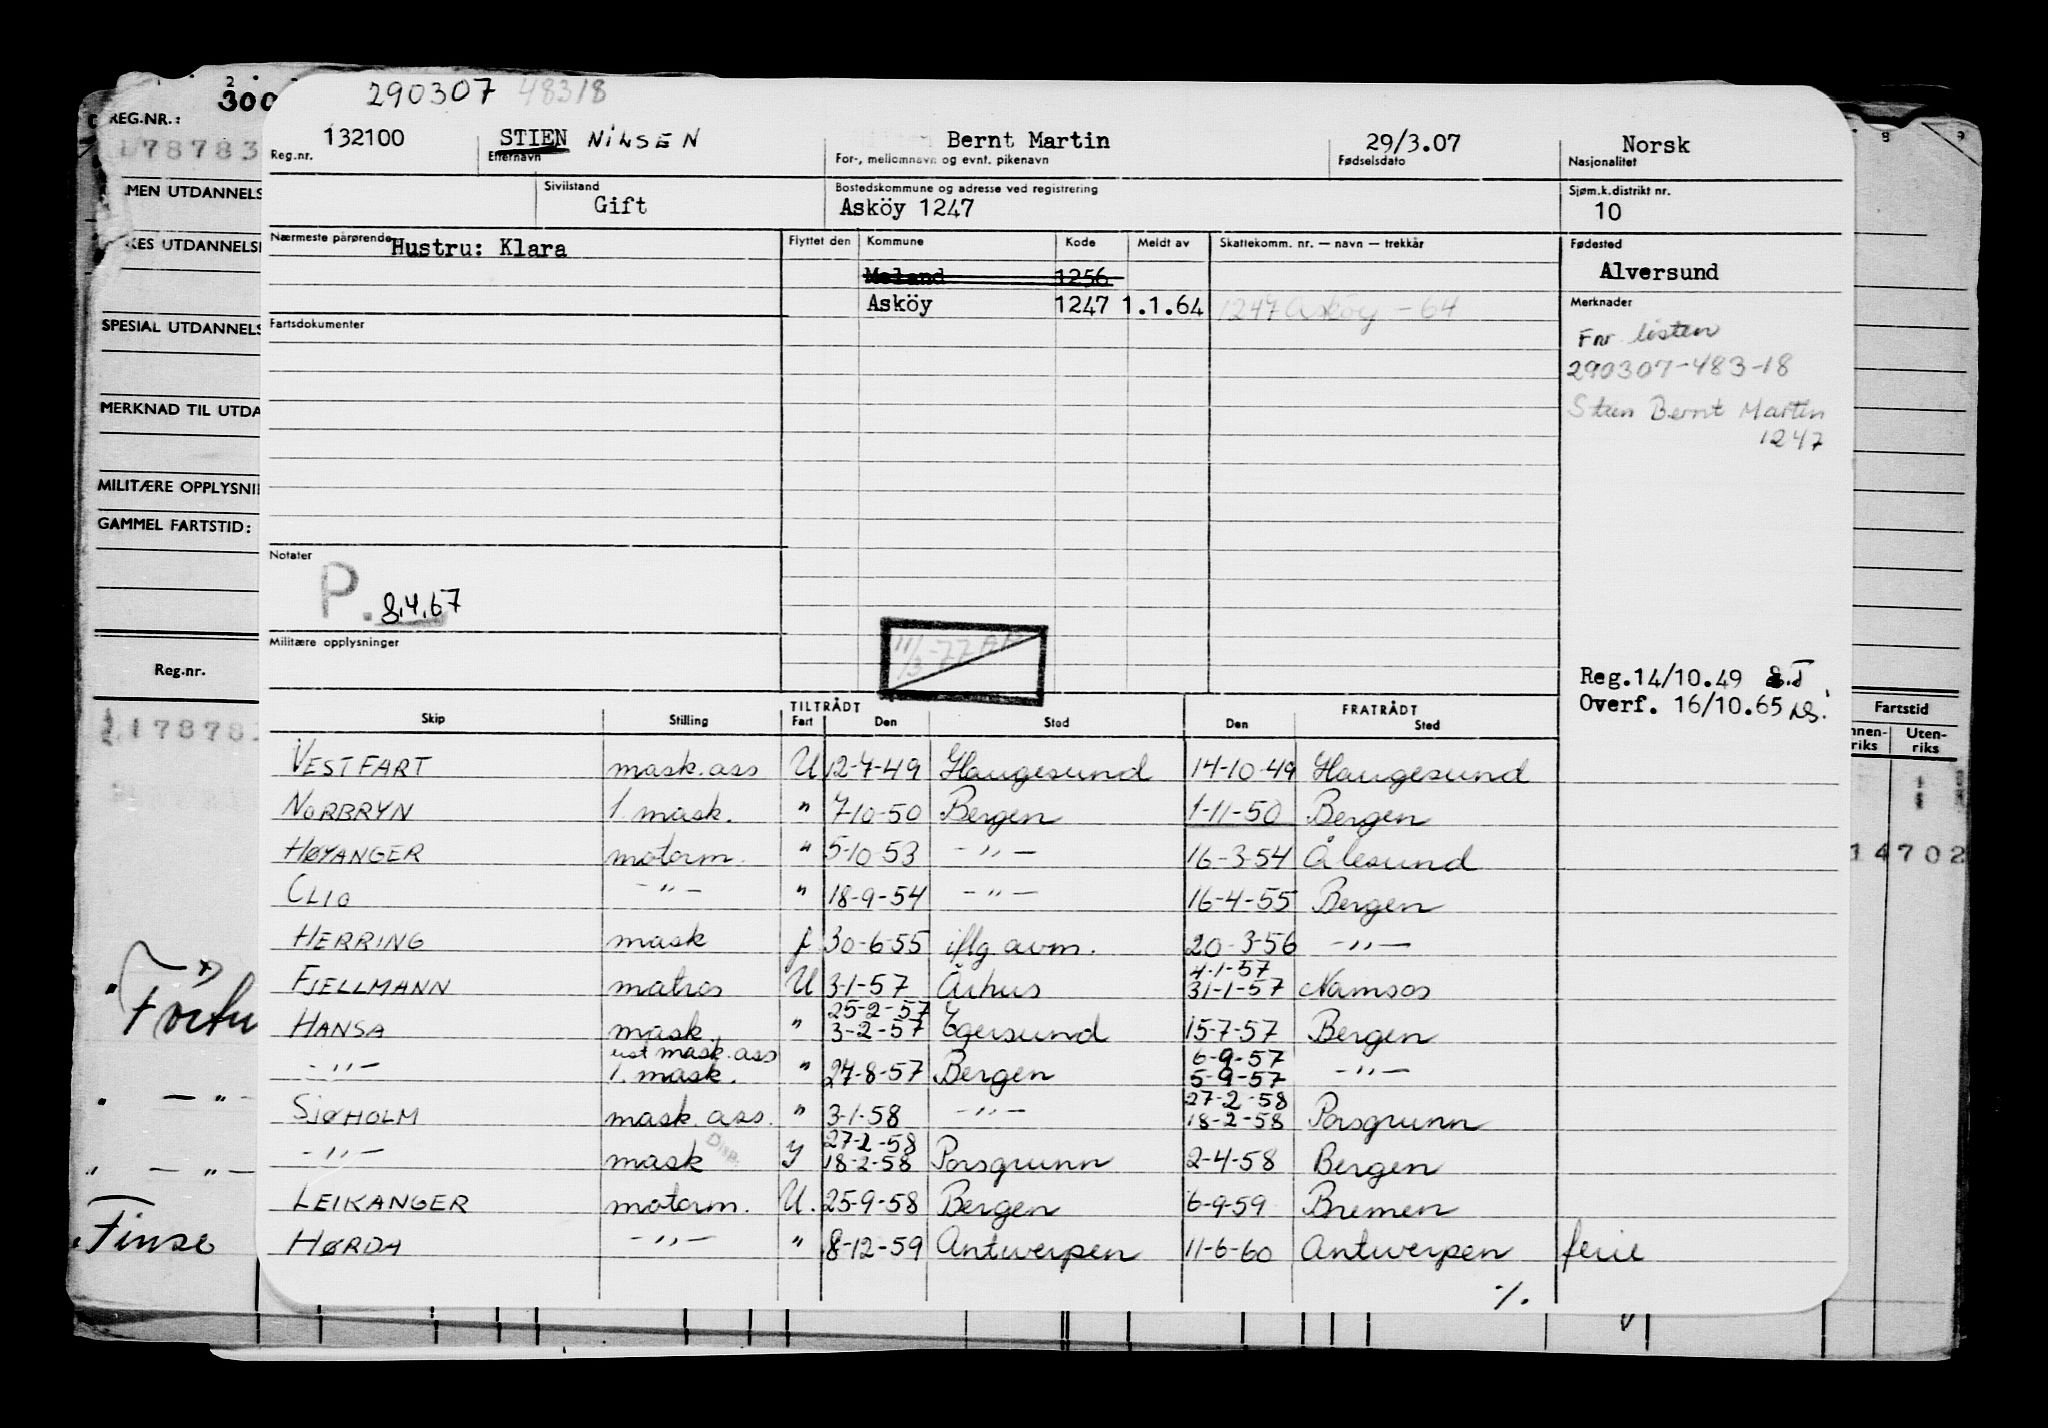 290307 48318
300
REG.NR.:
132100 STIEN NILSEN Bernt Martin 29/3.07 Norsk
Reg.nr. Etternavn For-, mellomnavn og evnt. pikenavn Fødselsdato Nasjonalitet
178783
Sivilstand Bostedskommune og adresse ved registrering Sjøm.k.distrikt nr.
Gift Asköy 1247 10
MEN UTDANNELS
KES UTDANNELS
Nærmeste pårørende Hustru: Klara Flyttet den Kommune Kode Meldt av Skattekomm. nr. — navn — trekkår Fødested
Meland 1256 Alversund
Asköy 1247 1.1.64 1247 Askøy - 64 Merknader
SPESIAL UTDANNELS
Fartsdokumenter
Fnr listen
290307-483-18
MERKNAD TIL UTDA
Stien Bernt Martin
1247
MILITÆRE OPPLYSNI
GAMMEL FARTSTID:
Notater
P. 8.4.67
Militære opplysninger
11/3-77
Reg.nr.
Reg.14/10.49
Overf. 16/10.65
TILTRÅDT FRATRÅDT
Skip Stilling Fart Den Sted Den Sted
Fartstid
Innen-riks Uten-riks
17878
VESTFART mask.ass U 12-7-49 Haugesund 14-10-49 Haugesund
NORBRYN 1. mask. " 7-10-50 Bergen 1-11-50 Bergen
HØYANGER motorm. " 5-10-53 -"- 16-3-54 Ålesund
14702
CLIO -"- " 18-9-54 -"- 16-4-55 Bergen
HERRING mask f 30-6-55 iflg avm. 20-3-56 -"-
4-1-57
FJELLMANN matros U 3-1-57 Århus 31-1-57 Namsos
25-2-57
HANSA mask. " 3-2-57 Egersund 15-7-57 Bergen
ust mask.ass 6-9-57
-"- 1. mask. " 27-8-57 Bergen 5-9-57 -"-
27-2-58
SJØHOLM mask.ass. " 3-1-58 -"- 18-2-58 Porsgrunn
DISP. 27-2-58
-"- mask y 18-2-58 Porsgrunn 2-4-58 Bergen
LEIKANGER motorm. U. 25-9-58 Bergen 6-9-59 Bremen
Finse
HØRDA -"- " 8-12-59 Antwerpen 11-6-60 Antwerpen ferie
./.